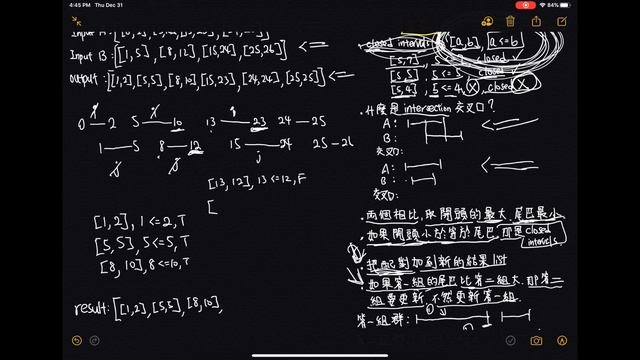 4:45 PM Thu Dec 31
84%
Input B: [[1,5], [8,12], [15,24], [25,26]]
Output: [[1,2], [5,5], [8,10], [15,23], [24,24], [25,25]]
0 2 5 10 13 23 24 25
1 5 8 12 15 24 25 26
[13,12], 13<=12, F
[
[1,2], 1<=2, T
[5,5], 5<=5, T
[8,10], 8<=10, T
result: [[1,2], [5,5], [8,10],
closed intervals [a,b], a<=b
[5,7], closed
[5,5], 5<=5 closed
[5,4], 5<=4 X, closed X
什麼是 intersection 交叉口?
A:
B:
交叉口:
A:
B:
交叉口:
兩個相比, 取開頭的最大, 尾巴最小
如果開頭小於等於尾巴, 那是 closed intervals
把配對加到新的結果 list
如果第一組的尾巴比第二組大, 那第二
組要更新, 不然更新第一組
第一組群: